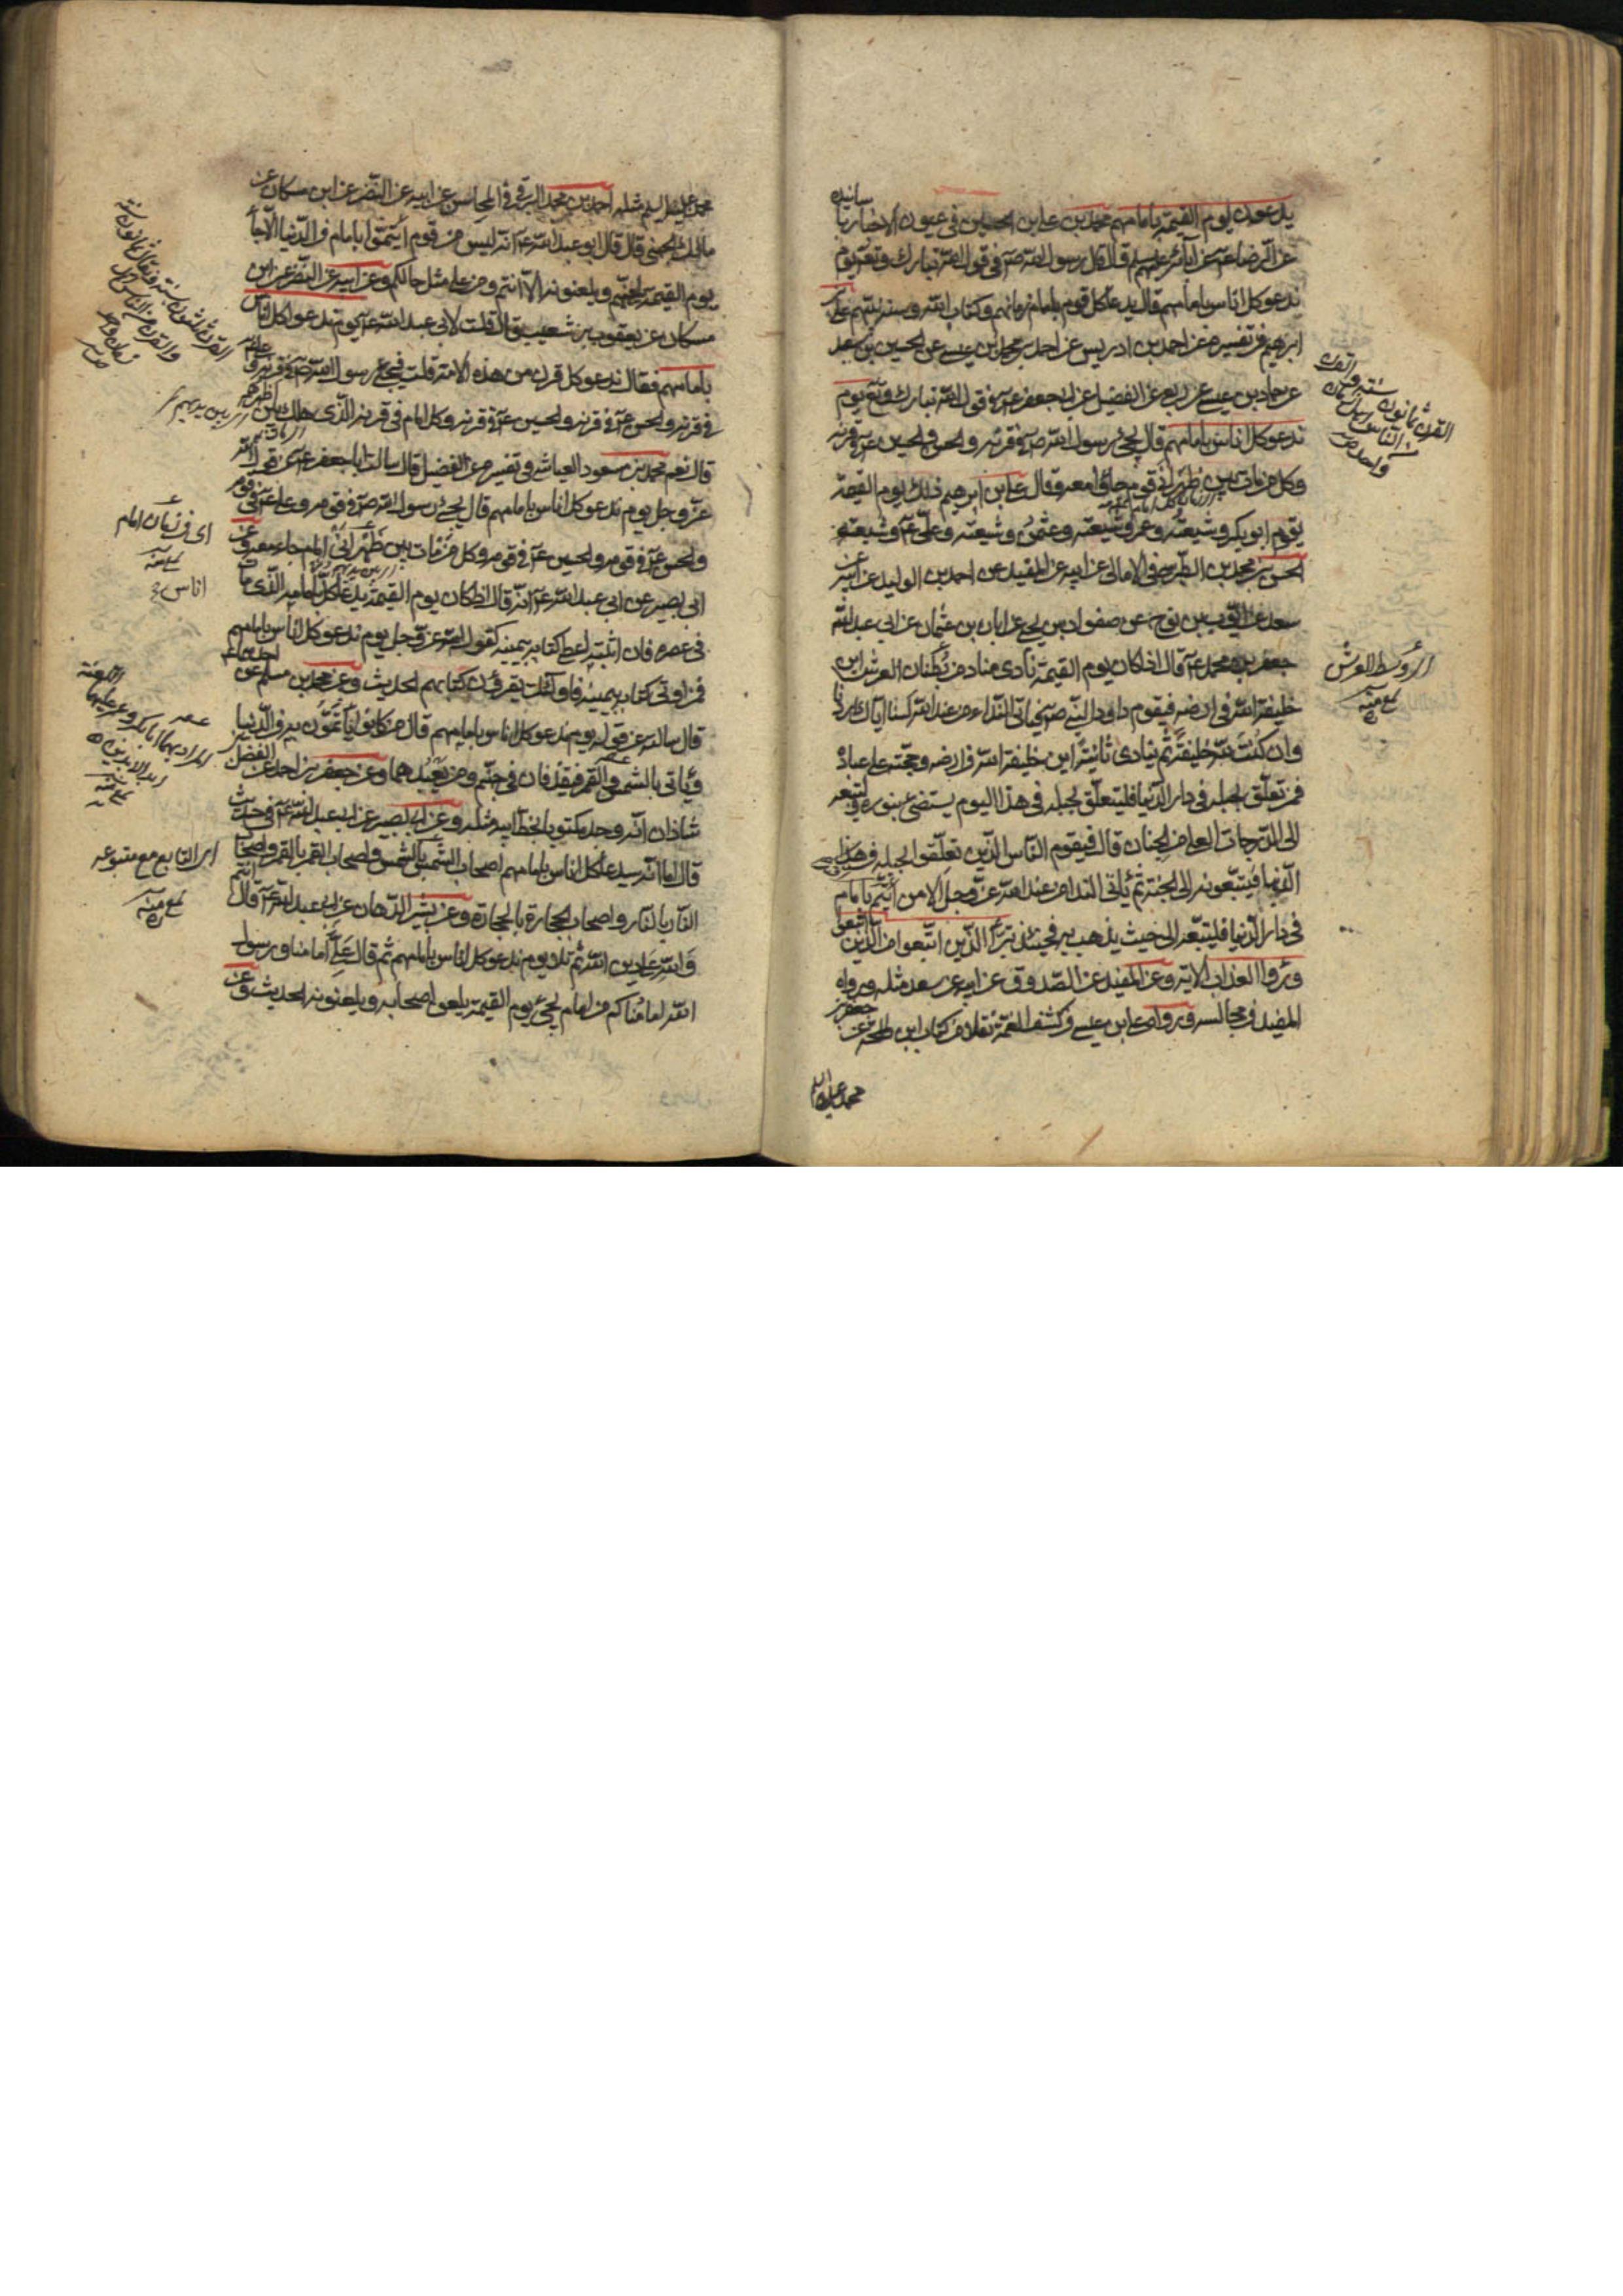 يدعون يوم القيمة بامامهم محمد بن علي بن الحسين في عيون الاخبار باسانيده
عن الرضا عن آبائه قال قال رسول الله ص في قول الله تبارك وتعالى يوم
ندعو كل اناس بامامهم قال يدعا كل قوم بامام زمانهم وكتاب الله وسنة نبيهم علي بن
ابرهيم في تفسيره عن احمد بن ادريس عن احمد بن محمد بن عيسى عن الحسين بن سعيد
عن حماد بن عيسى عن ربعي عن الفضيل عن ابي جعفر ع في قول الله تبارك وتع يوم
ندعو كل اناس بامامهم قال يجيء رسول الله ص في قرنه والحسن والحسين ع في قرنه
وكل من مات بين ظهراني قوم جاؤا معه وقال علي بن ابرهيم ذلك يوم القيمة
يقوم ابو بكر وشيعته وعمر وشيعته وعثمن وشيعته وعلي ع وشيعته
الحسن بن محمد بن الطوسي في الامالي عن ابيه عن المفيد عن احمد بن الوليد عن ابيه عن
سعد عن ايوب بن نوح عن صفوان بن يحيى عن ابان بن عثمان عن ابي عبد الله
جعفر بن محمد ع قال اذا كان يوم القيمة نادى مناد من بطنان العرش اين
خليفة الله في ارضه فيقوم داود النبي ص فياتي النداء من عند الله لسنا اياك اردنا
وان كنت لله خليفة ثم ينادي ثانية اين خليفة الله في ارضه وحجته على عباده
فمن تعلق بحبله في دار الدنيا فليتعلق بحبله في هذا اليوم يستضئ بنوره وليتبعه
الى الدرجات العلى من الجنان قال فيقوم الناس الذين تعلقوا بحبله في هذا
الدنيا فيتبعونه الى الجنة ثم ياتي النداء من عند الله عز وجل الا من ائتم بامام
في دار الدنيا فليتبعه الى حيث يذهب به فحينئذ تبرأ الذين اتبعوا من الذين اتبعوا
وراوا العذاب الاية وعن المفيد عن الصدوق عن ابيه عن سعد مثله ورواه
المفيد في مجالسه ورواه علي بن عيسى في كشف الغمة نقلا من كتاب ابن طلحة عن جعفر بن
محمد عليه السلام
القرن ثمانون سنة والقرن
من الناس اهل زمان
واحد ص
اي وسط العرش
منه
محمد عليه السلم مثله احمد بن محمد البرقي في المحاسن عن ابيه عن النضر عن ابن مسكان عن
مالك الجهني قال قال ابو عبد الله ع انه ليس من قوم ائتموا بامام في الدنيا الا جاء
يوم القيمة يلعنهم ويلعنونه الا انتم ومن على مثل حالكم وعن ابيه عن النضر عن ابن
مسكان عن يعقوب بن شعيب قال قلت لابي عبد الله ع يوم ندعو كل اناس
بامامهم فقال ندعو كل قرن من هذه الامة قلت فيجيء رسول الله ص في قرنه وعلي
في قرنه والحسن ع في قرنه والحسين ع في قرنه وكل امام في قرنه الذي هلك بين اظهرهم
قال نعم محمد بن مسعود العياشي في تفسيره عن الفضيل قال سالت ابا جعفر ع عن قول الله
عز وجل يوم ندعو كل اناس بامامهم قال يجيء رسول الله ص في قومه وعلي ع في قومه
والحسن ع في قومه والحسين ع في قومه وكل من مات بين ظهراني امام جاء معه وعن
ابي بصير عن ابي عبد الله ع انه قال اذا كان يوم القيمة يدعا كل بامامه الذي مات
في عصره فان اثبته اعطي كتابه بيمينه كقول الله عز وجل يوم ندعو كل اناس بامامهم
فمن اوتي كتابه بيمينه فاولئك يقرؤن كتابهم الحديث وعن محمد بن مسلم عن احدهما
قال سالته عن قوله يوم ندعو كل اناس بامامهم قال من كانوا ياتمون به في الدنيا
ويأتى بالشمس والقمر فيقذفان في جهنم ومن يعبدهما وعن جعفر بن احمد عن الفضل بن
شاذان انه وجد مكتوبا بخط ابيه مثله وعن ابي بصير عن ابي عبد الله ع في حديث
قال اما انه سيدعا كل اناس بامامهم اصحاب الشمس بالشمس واصحاب القمر بالقمر واصحاب
النار بالنار واصحاب الحجارة بالحجارة وعن بشير الدهان عن ابي عبد الله ع قال انتم
والله على دين الله ثم تلا يوم ندعو كل اناس بامامهم ثم قال علي امامنا ورسول
الله امامنا كم من امام يجيء يوم القيمة يلعن اصحابه ويلعنونه الحديث وعن
والقرن من الناس اهل
زمان واحد
اي في زمان امام
منه
اناس
المراد بهما ابا بكر وعمر عليهما
اللعنة
ابد الابدين
منه
اي التابع مع متبوعه
منه